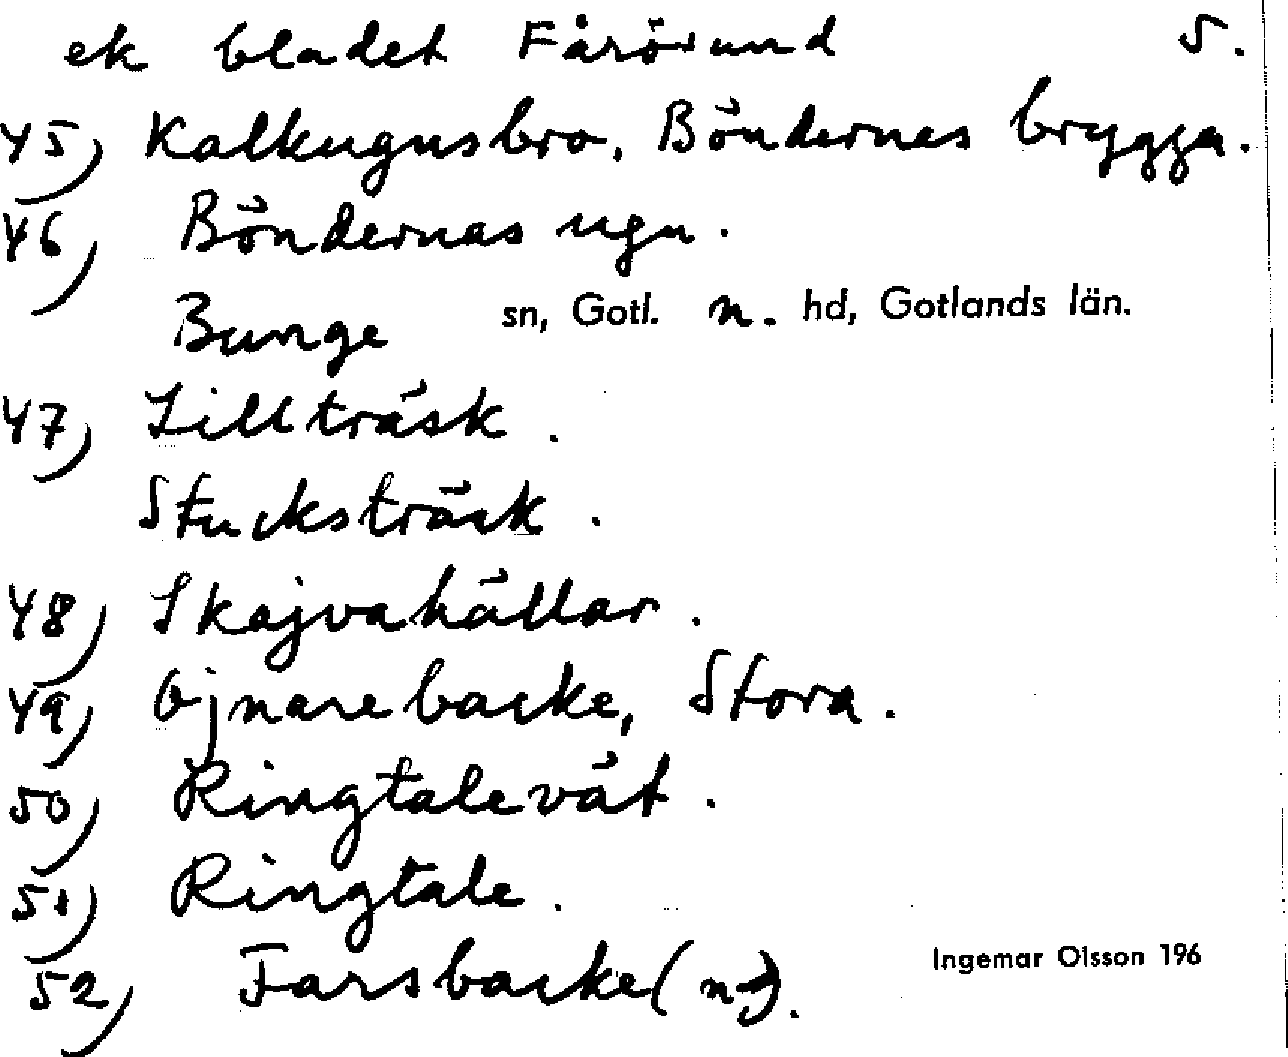 ek bladet Fårösund 5.
45) Kalkugnsbro, Böndernas brygga.
46) Böndernas ugn.
Bunge sn, Gotl. n. hd, Gotlands län.
47) Lillträsk.
Stucksträsk.
48) Skajvahällar.
49) Ojnarebacke, Stora.
50) Ringtalevät.
51) Ringtale.
52) Farsbacke(n).
Ingemar Olsson 196